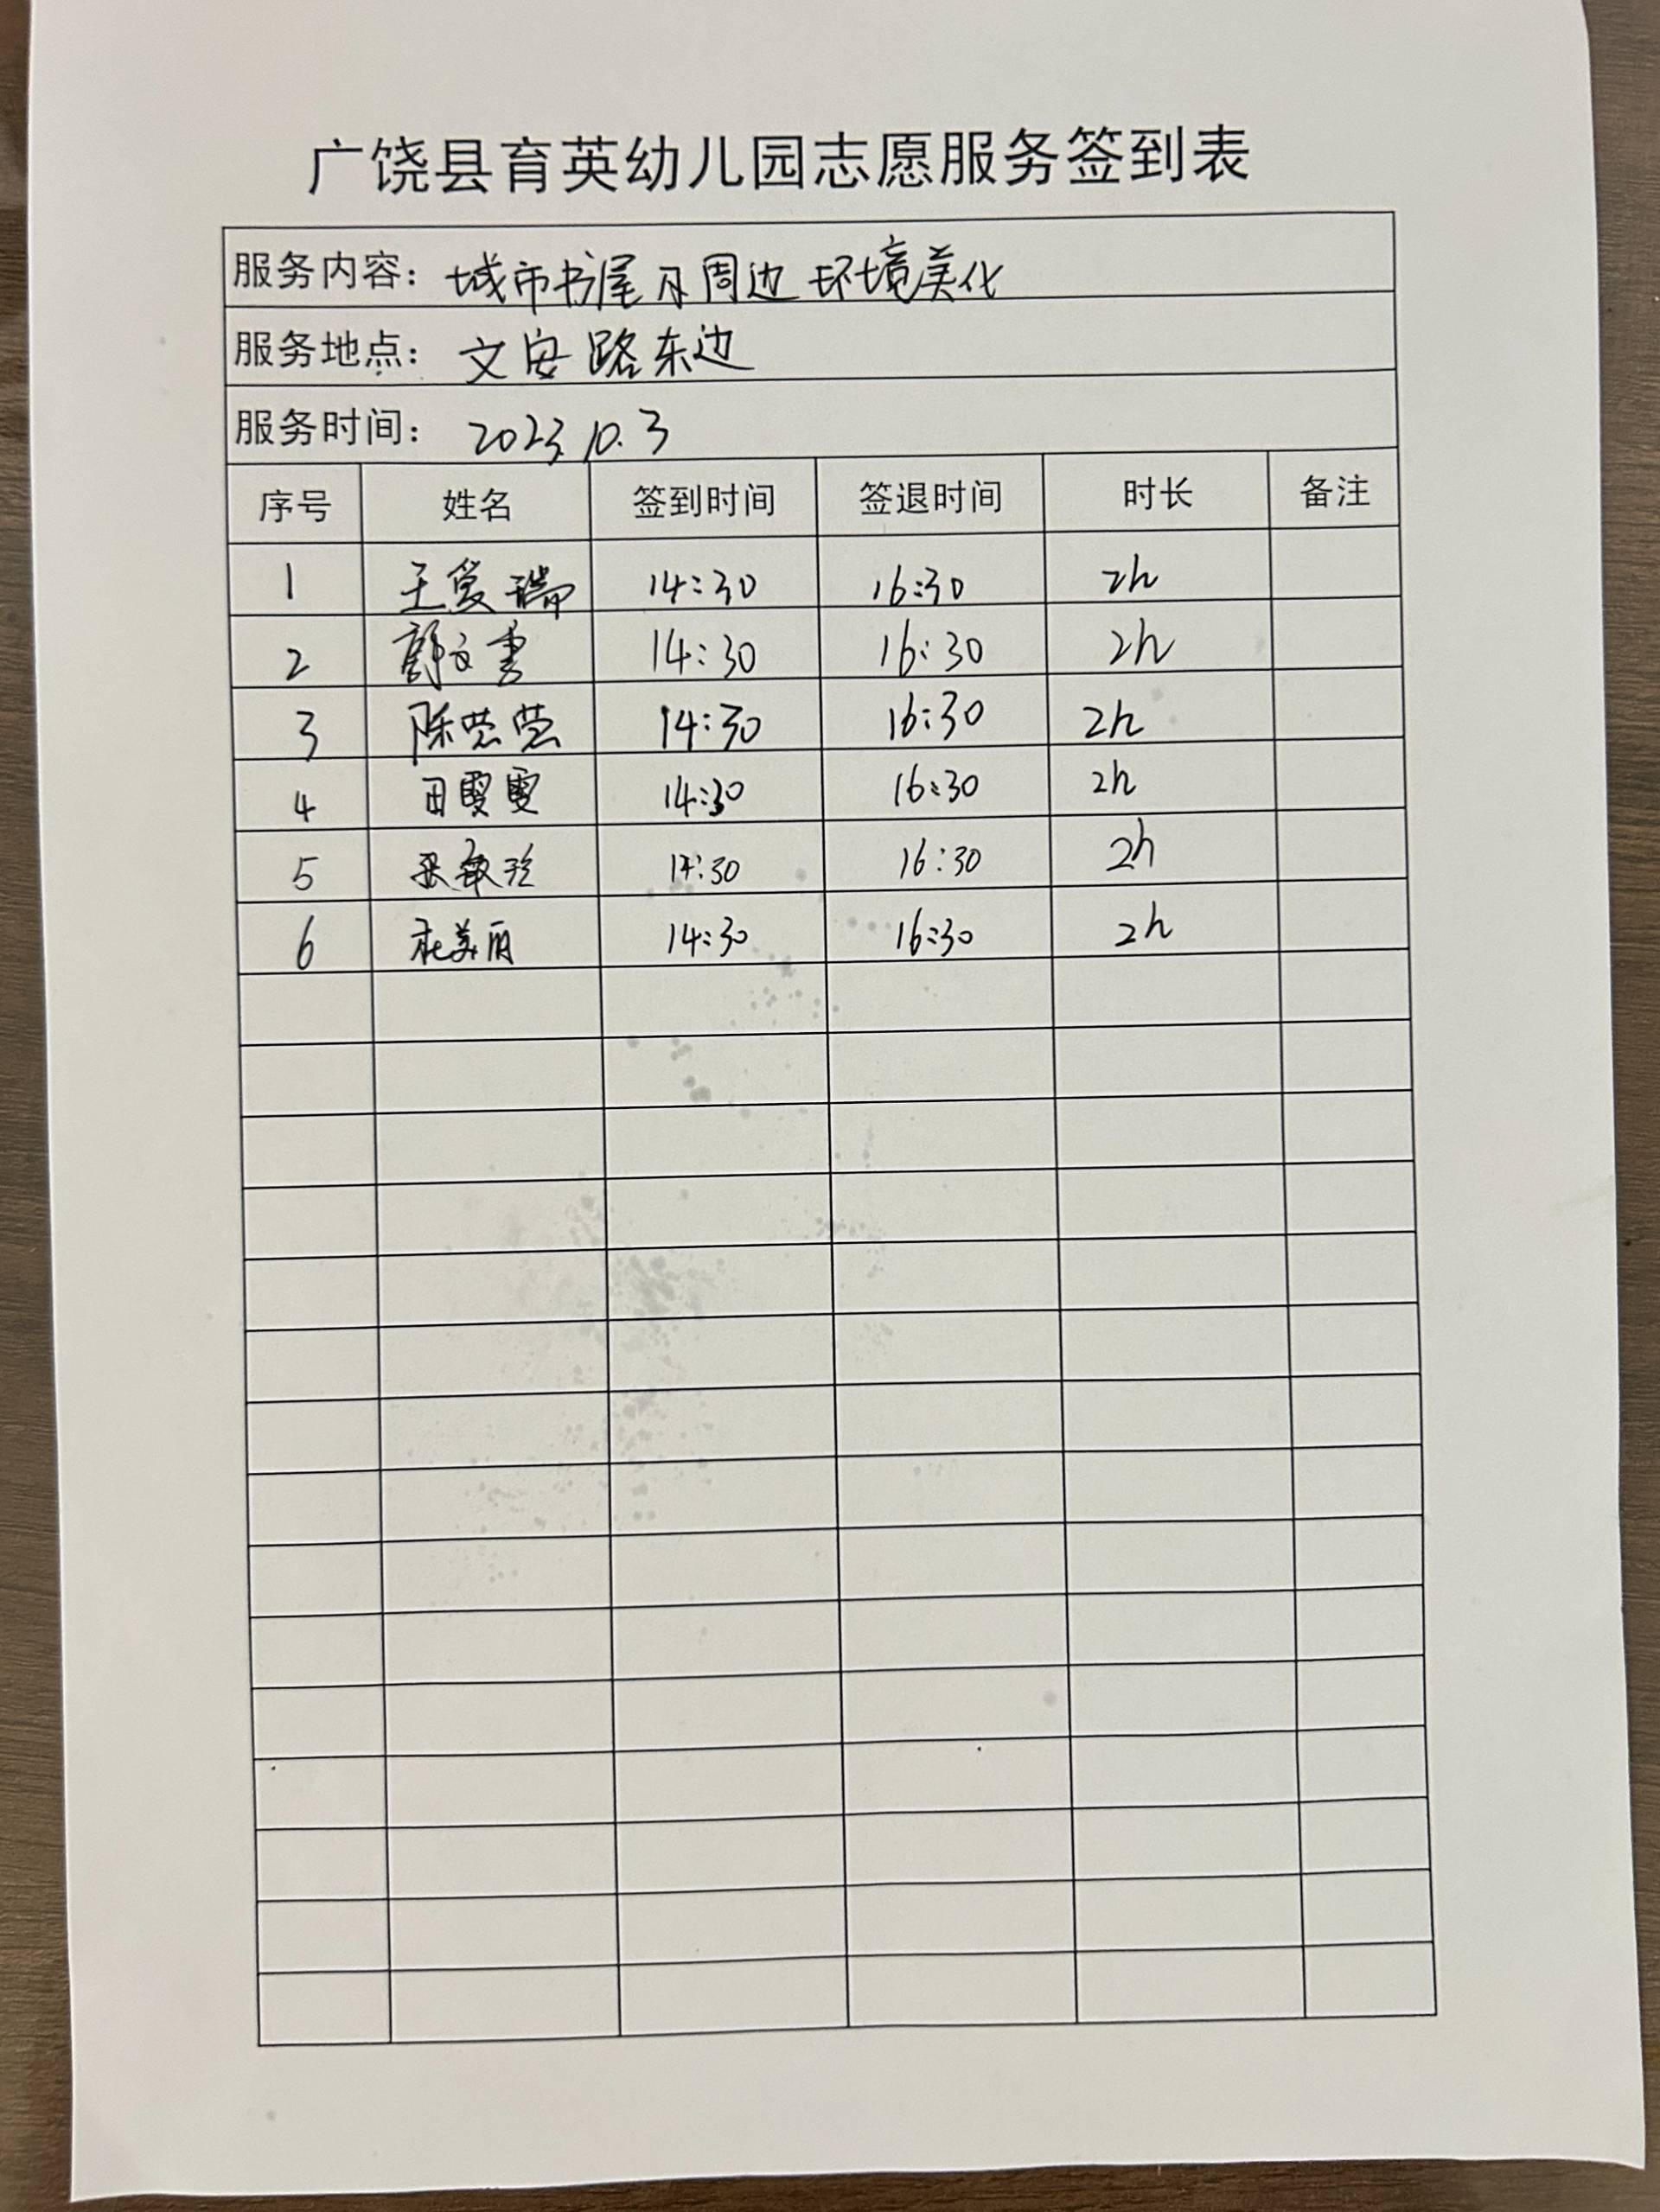 广饶县育英幼儿园志愿服务签到表
服务内容：城市书屋及周边环境美化
服务地点：文安路东边
服务时间：2023.10.3
序号 姓名 签到时间 签退时间 时长 备注
1 王夏瑞 14:30 16:30 2h
2 郭文 14:30 16:30 2h
3 陈莹莹 14:30 16:30 2h
4 田雯雯 14:30 16:30 2h
5 张敏珍 14:30 16:30 2h
6 杜美丽 14:30 16:30 2h